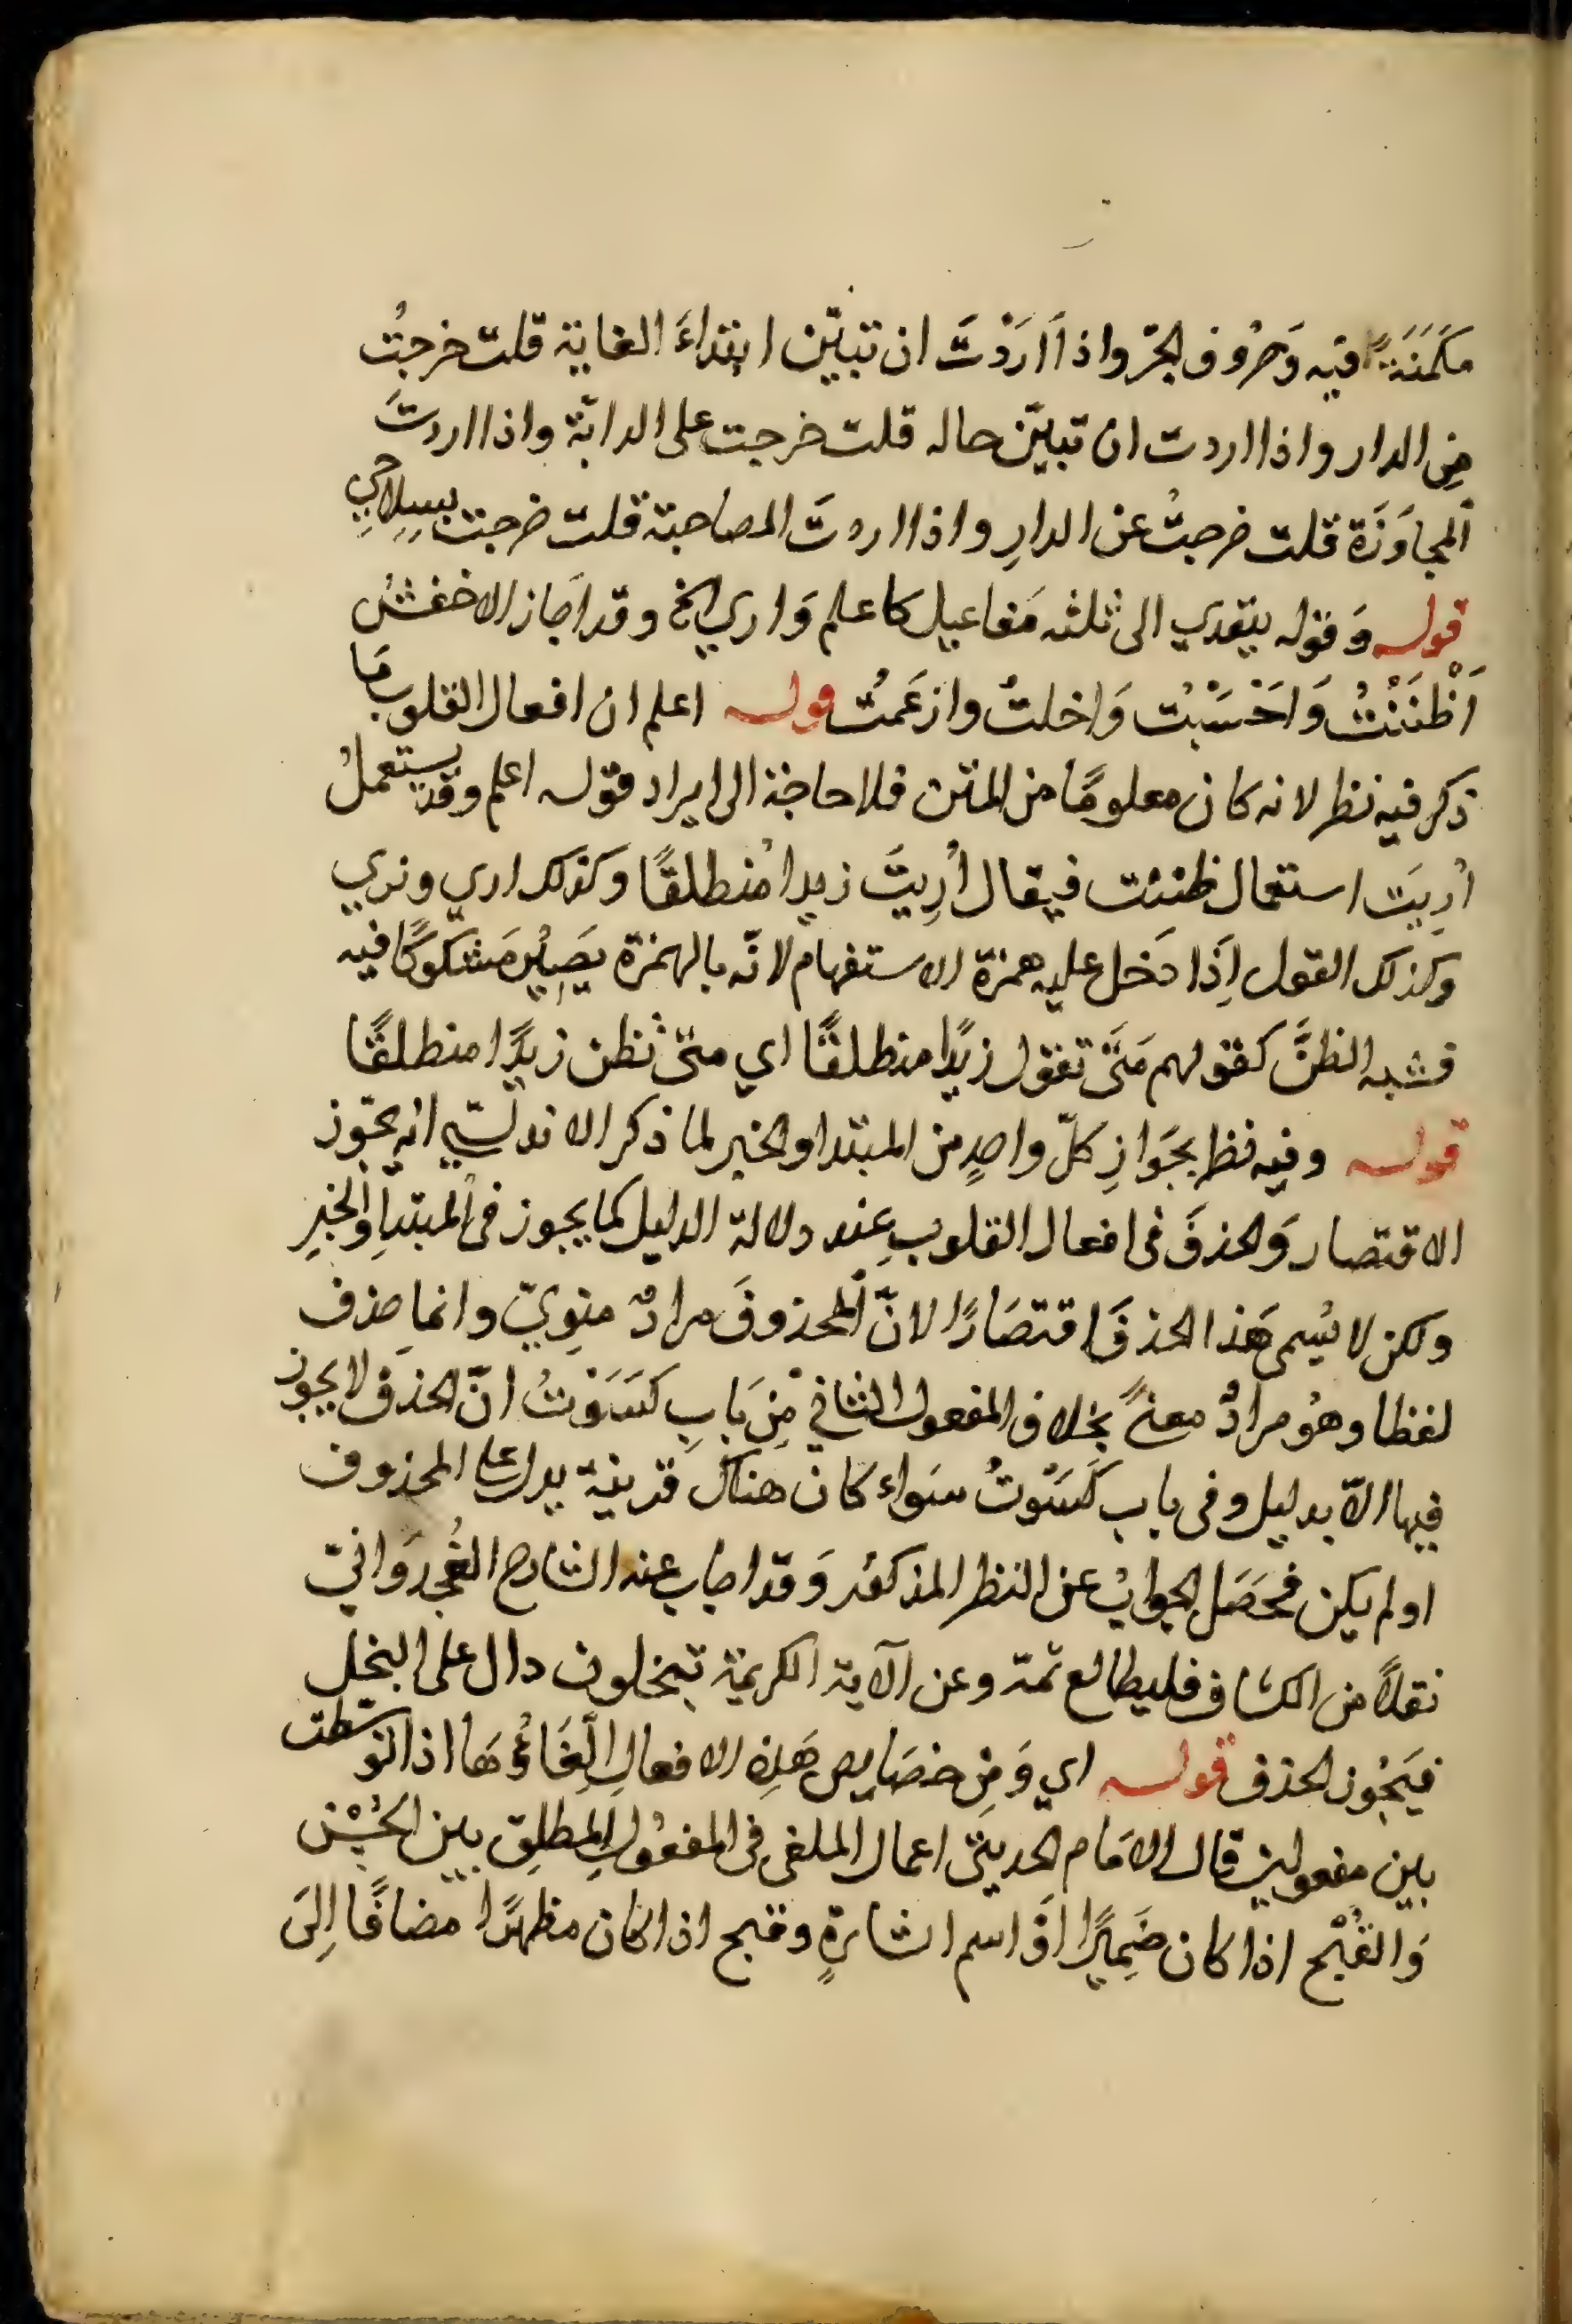 مكمنة فيه وَحرُوف الجرّ واذا اَرَدْتَ ان تبيّن ابتداءَ الغاية قلت خرجتُ
مِن الدار واذا اردت ان تبيّن حاله قلت خرجت على الدابّة واذا اردتَ
اَلمجاوَزَة قلت خرجتُ عن الدارِ واذا اردتَ المصاحبة قلت خرجت بسِلاحِي
قوله وَقوله يتعدي الى ثلثه مَفاعيل كاعلم وَاري الخ وقد اَجاز الاخفشُ
اَظْنَنْتُ وَاحْسَبْتُ وَاخلتُ وازعَمتُ قوله اعلم ان افعال القلوب مَا
ذكر فيه نظر لانه كان معلومًا من المتن فلا حاجة الى ايراد قوله اعلم وقد يستعملُ
اُرِيَت استعمال ظننت فيقال اُرِيتَ زيدا مُنطلقًا وكذلك اري ونري
وكذلك القول اِذَا دَخل عليه همزة الاستفهام لانّه بالهمزة يَصِيْر مَشكوكًا فيه
فشبه الظنَّ كقولهم مَتَى تقول زيدًا منطلقًا اي متى تظن زيدًا منطلقًا
قوله وفيه نظر بجَوازِ كلّ واحدٍ من المبتدا والخبر لما ذكر الاندلسيّ انه يجوز
الاقتصار وَالحذفَ في افعال القلوبِ عِند دلالة الدليل كما يجوز في المبتداِ والخبرِ
ولكن لا يُسمى هَذا الحذفَ اقتصَارًا لانّ اَلمحذوفَ مرادٌ منوِيّ وانما حذف
لفظا وهُو مرادٌ معنًى بخلاف المفعول الثاني مِن بَابِ كَسَوْتُ انّ الحذف لا يجوز
فيها الاّ بدليل وفي باب كَسَوْتُ سَواء كان هناك قرينة يدل على المحذوف
او لم يكن فحَصَل الجوابُ عن النظر المذكور وَقد اجاب عنه الشارح الغُجدَوانيّ
نقلاً من الكشاف فليطالع ثمة وعن الآية الكريمة تبخلون دال على البخل
فيَجُوز الحذف قوله اي وَمِن خصَايص هَذِه الافعالِ اِلْغَاؤُهَا اذا توسّطت
بين مفعولين قال الامَام الحديثي اعمال الملغى في المفعُولِ المطلِق بين الحُسْن
وَالقُبْح اذا كان ضَمِيرًا اَوْ اسم اشارةٍ وقبح اذا كان مظهرًا مضافًا اِلَى